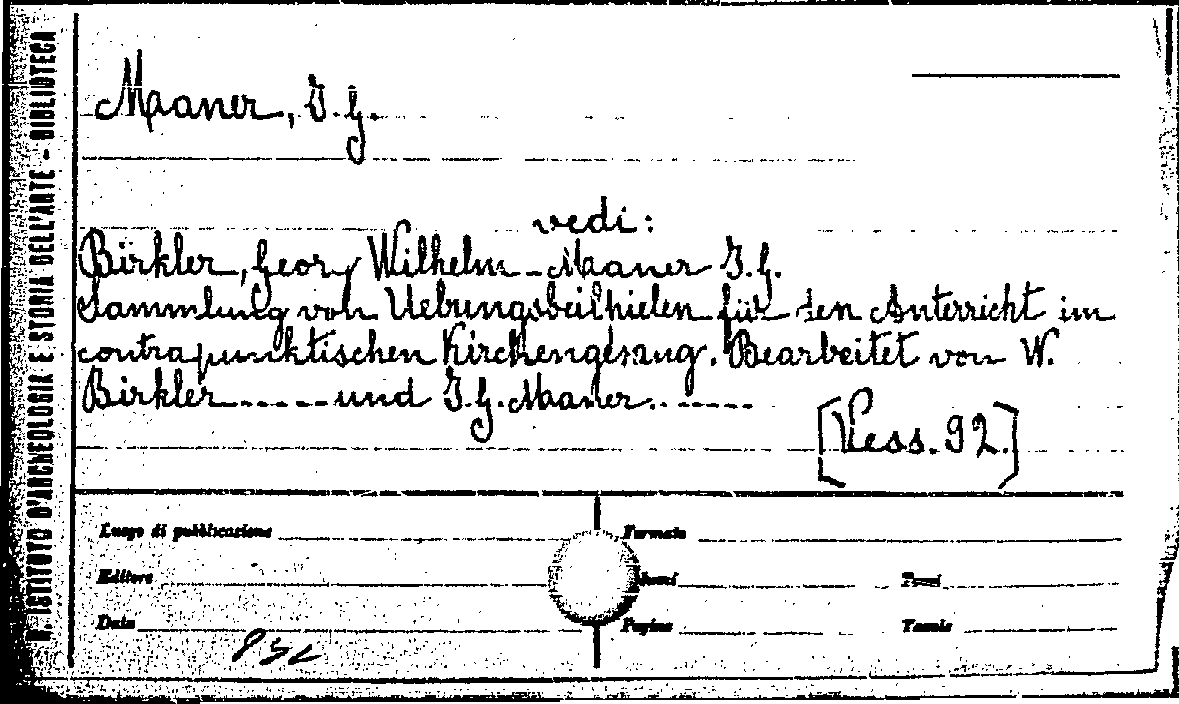 R. ISTITUTO D'ARCHEOLOGIA E STORIA DELL'ARTE - BIBLIOTECA
Maaner, J. G.
vedi:
Birkler, Georg Wilhelm - Maaner J. G.
Sammlung von Uebungsbeihielen für den Unterricht im
contrapunktischen Kirchengesang. Bearbeitet von W.
Birkler ..... und J. G. Maaner .......
[Vess. 92.]
Luogo di pubblicazione
Formato
Editore
Tomi
Data
Pagine
Tavole